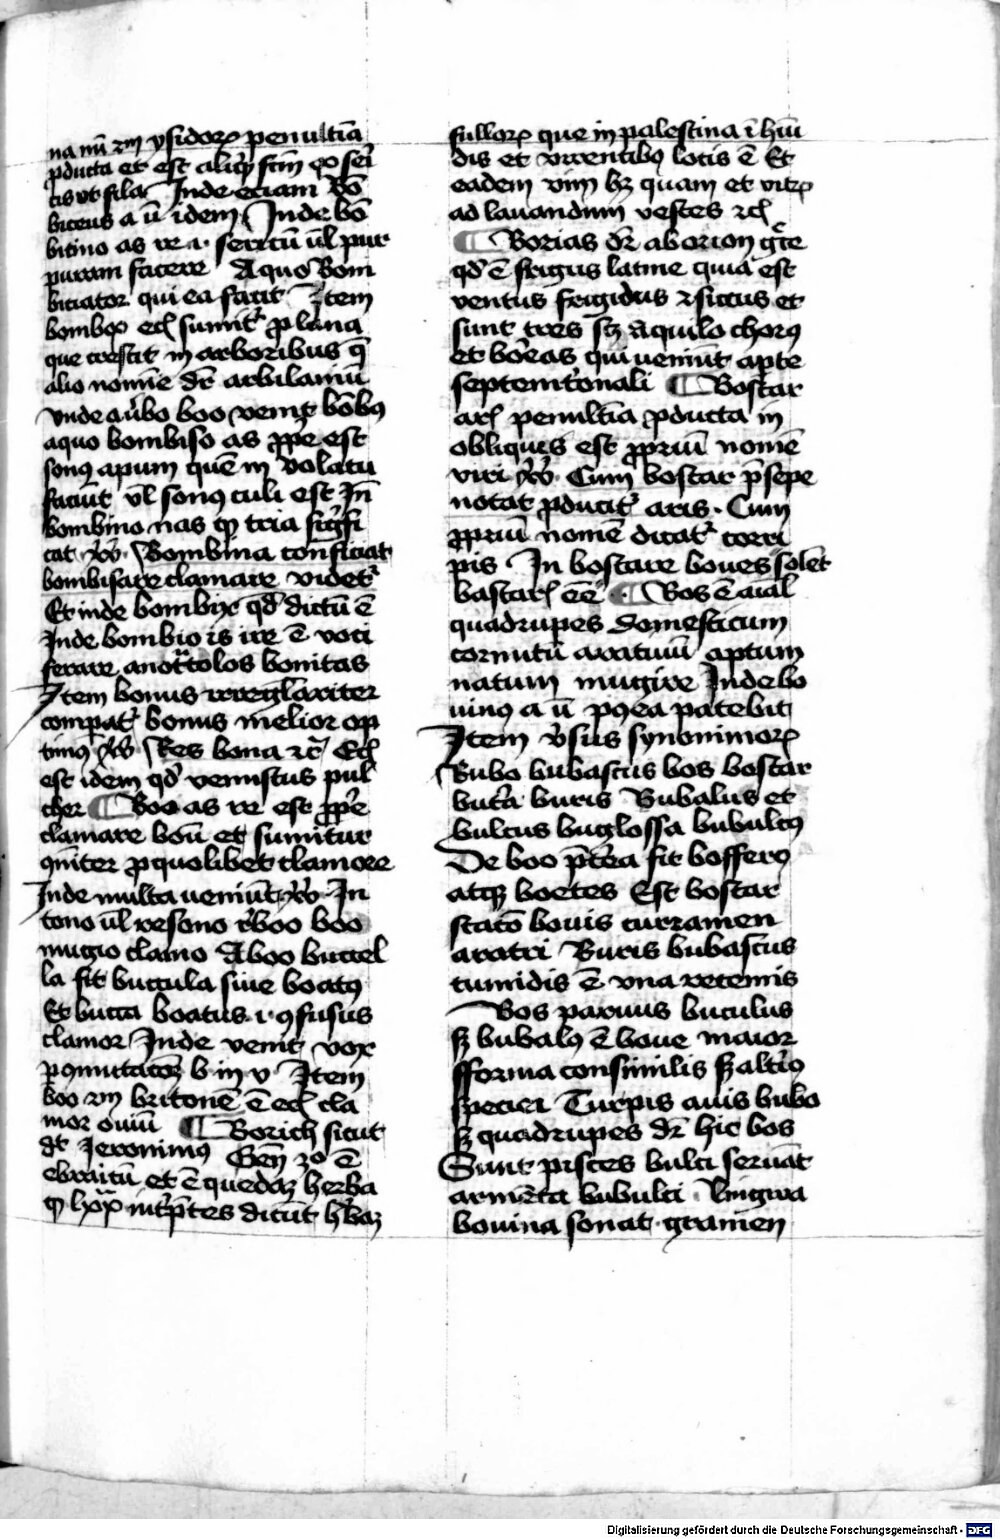 na nū scd̄m ysidorꝝ penultīa
ꝓducta et est aliq̄ scd̄m ꝙ seri
cis vt fila Inde eciam Bō
biceus a ū idem Inde bō
bicino as re .i. sericū ul̄ pur
puram facere A quo Bom
biciator qui ea facit Item
bombex ecī sumit᷑ ꝓ lana
que crescit in arboribus q̄
alio nomīe dr̄ arbilaniū
vnde a v̄bo boo venit bōbꝰ
a quo bombiso as ꝓpe est
sonꝰ apum quē in volatu
faciūt vl̄ sonꝰ culi est In̄
bombino nas ꝙ tria sig̅fi
cat vsꝰ Bombina conficiat
bombisare clamare videt᷑
Et inde bombix qd̄ dictū ē
Inde bombio is ire ē voci
ferare
Item bonus irreglariter
compat᷑ bonus melior op
timꝰ vsꝰ Res bona ⁊c̄ Ecī
est idem qd̄ venustus pul
cher Boo as re est ꝓpe
clamare boū et sumitur
ꝯmuniter ꝓ quolibet clamore
Inde multa veniūt vsꝰ In
tono ul̄ resono reboo boo
mugio clamo A boo buccel
la fit buccula siue boatꝰ
Et bucca boatus .i. ꝯfusus
clamor Inde venit vox
ꝑ ꝯmutacōꝫ b in v Item
boo scd̄m britonē ē ecī cla
mor ouiū Borich sicut
dt Ieronimꝰ Gen̄ 30 ē
ebraicū et ē quedaꝫ herba
ꝙ lxx int̄ꝑtes dicūt h̄baꝫ
fullorꝝ que in palestina ī hūi
dis et virentibꝰ locis ē Et
eadem vim hꝫ quam et vitrꝝ
ad lauandum vestes ⁊cī
Borias dr̄ a borion gr̄ce
qd̄ ē frigus latine quia est
ventus frigidus ⁊ siccus et
sunt tres sꝫ aquilo chorꝰ
et boreas qui veniūt a ꝑte
septemt̄onali Bostar
arꝭ penultīa ꝓducta in
obliquis est ꝓpriū nomē
viri vsꝰ Cum bostar p̄sepe
notat ꝓducit᷑ aris . Cum
ꝓpriū nomē dicat᷑ corri
pis In bostare boues solēt
bastarꝭ eē Bos ē aīal
quadrupes domesticum
cornutū aratuiū aptum
natum mugire Inde bo
uinꝰ a ū postea patebit
Item v̄sus synonimorꝝ
Bubo bubastus bos bostar
buc̄a buris Bubalus et
bulcus buglossa bubulcꝰ
De boo pret̄ea fit bofferꝰ
atqꝫ boetes Est bostar
stacō bouis curzamen
aratri Buris bubastus
tumidis ē vna retemis
Bos paruus buculus
sꝫ bubalꝰ ē boue maior
fforma consimilis sꝫ alt̄iꝰ
speciei Turpis auis bubo
sꝫ quadrupes dr̄ hic bos
Sunt pisces bulci seruāt
arm̄ta bubulci lingwa
bouina sonat gramen
Digitalisierung gefördert durch die Deutsche Forschungsgemeinschaft - DFG